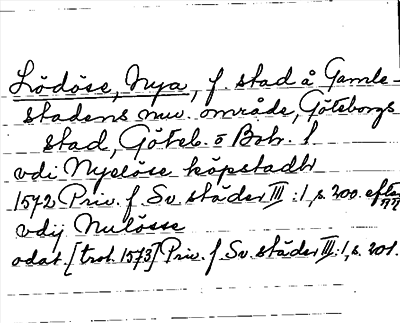 Lödöse, Nya, f. stad å Gamle-
stadens nuv. område, Göteborgs
stad, Göteb. o Boh. l
vdi Nyelöse köpstadh
1572 Priv. f. Sv. städer III:1, s. 200. efter
vdij Nulösse
odat. [trol. 1573] Priv. f. Sv. städer III:1, s. 201.